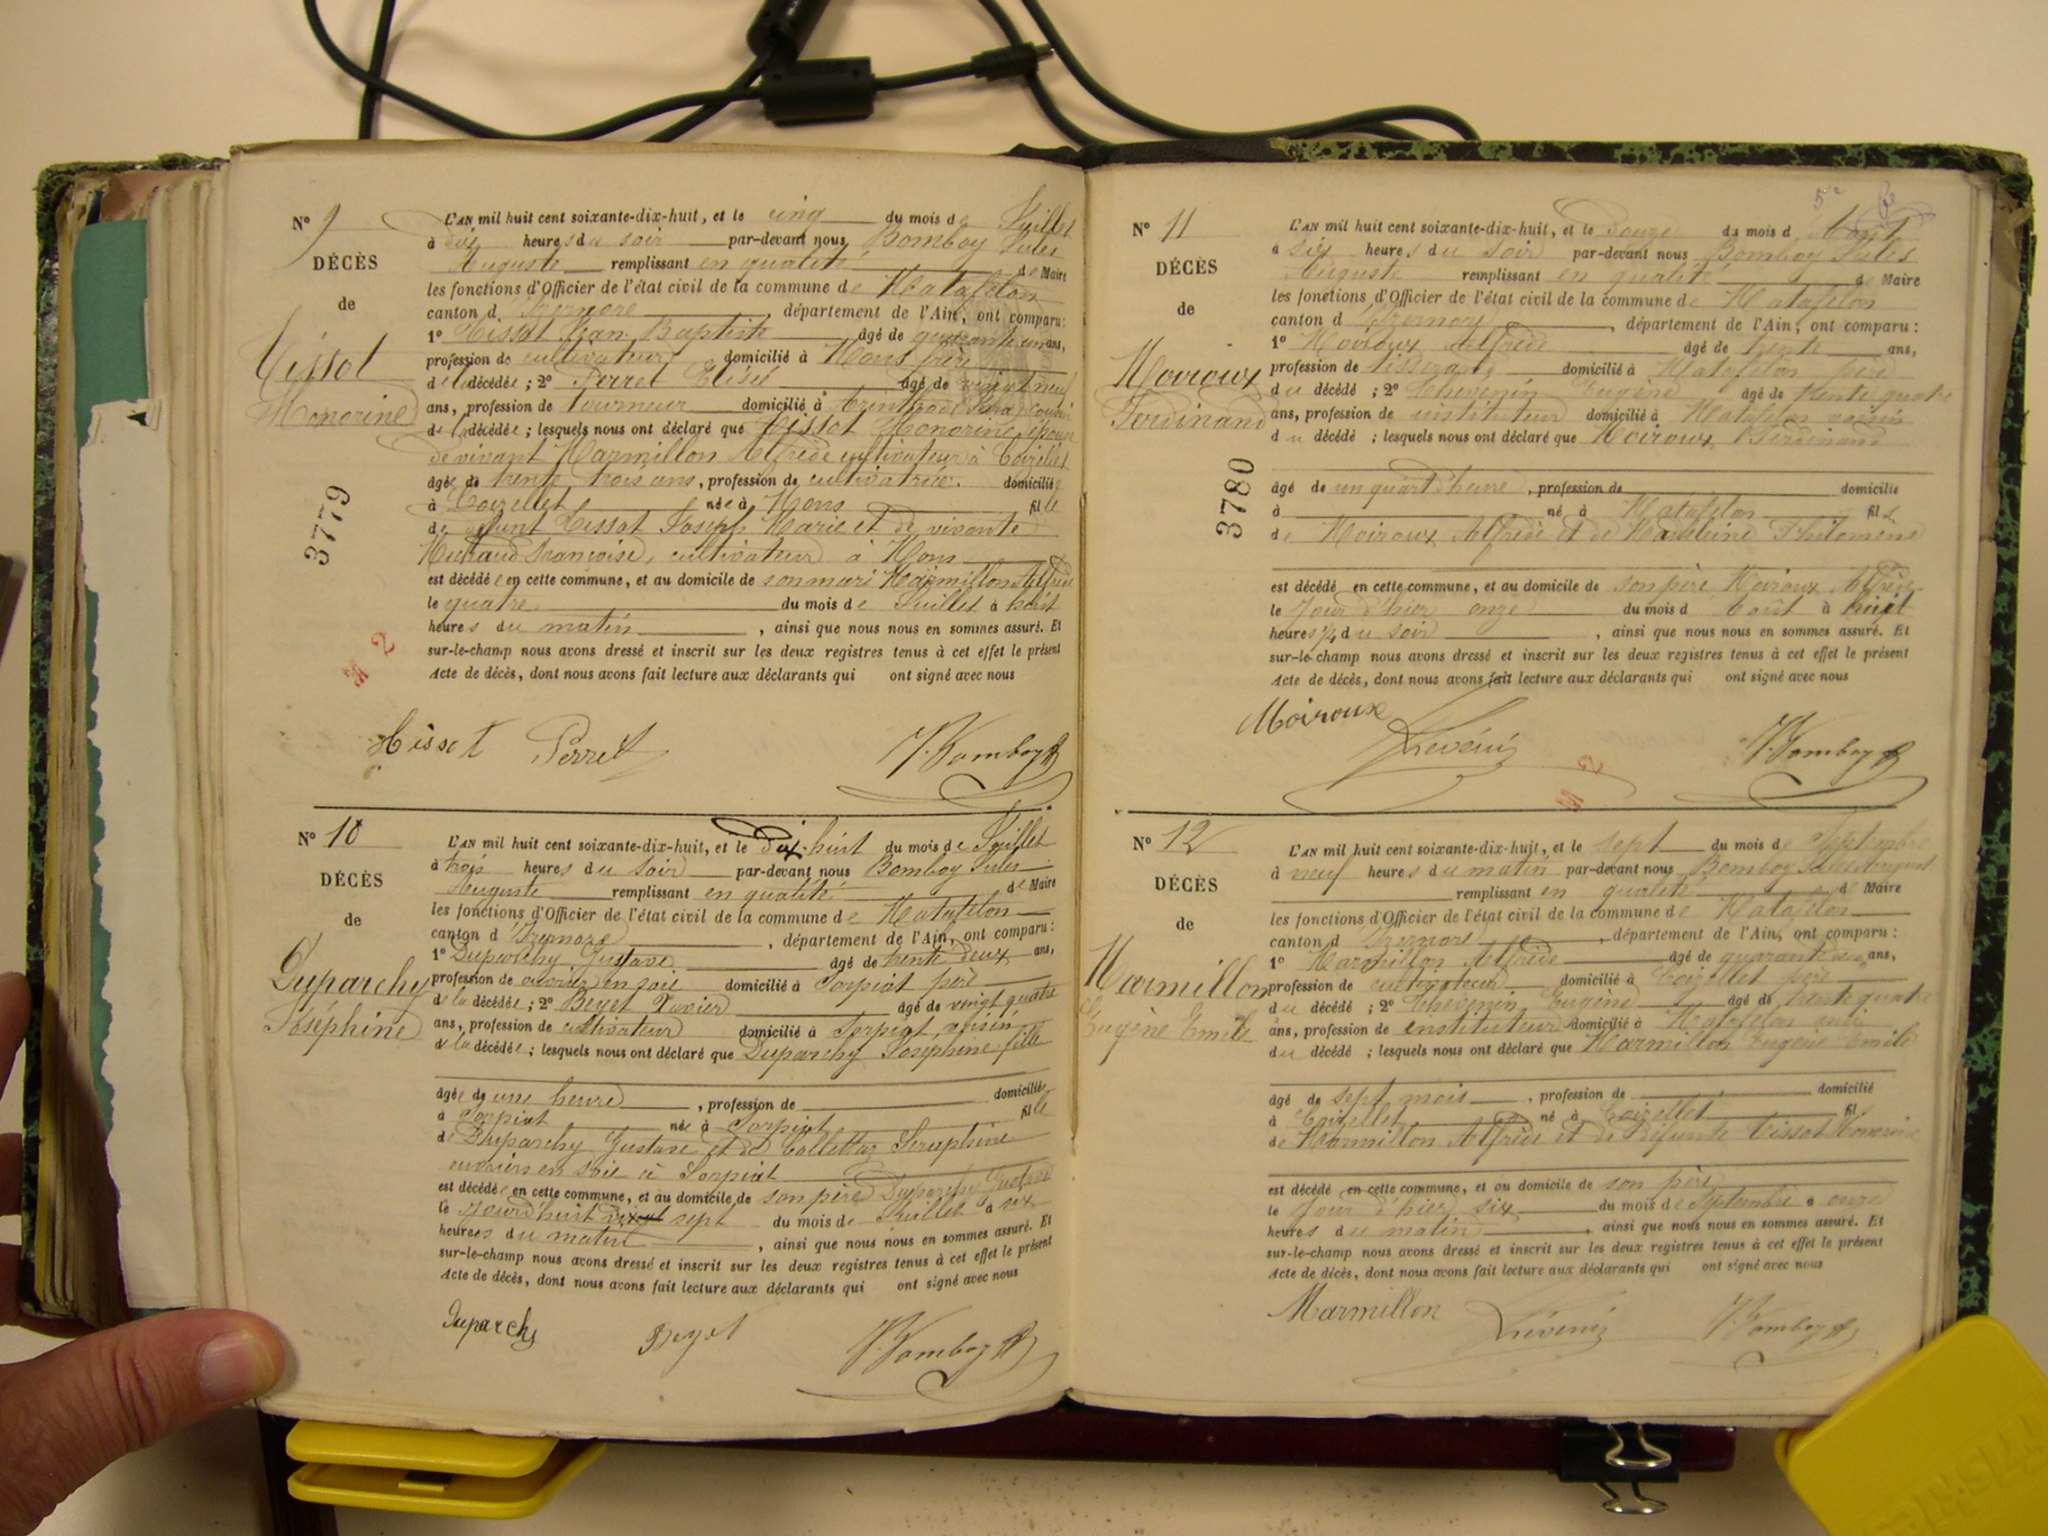 N° 9
DÉCÈS
de
Tissot
Honorine
3779
L'AN mil huit cent soixante-dix-huit, et le cinq du mois de Juillet
à dix heures du soir par-devant nous Bomboy Jules
Auguste remplissant en qualité de Maire
les fonctions d'Officier de l'état civil de la commune de Matafelon
canton d'Izernore, département de l'Ain, ont comparu:
1° Tissot Jean Baptiste âgé de quarante un ans,
profession de cultivateur domicilié à Mons frère
de la décédée; 2° Perret Elisée âgé de vingt neuf
ans, profession de tourneur domicilié à cousin
de la décédée; lesquels nous ont déclaré que Tissot Honorine, épouse
de vivant Marmillon Alfrède cultivateur à Coizelet
âgée de trente trois ans, profession de cultivatrice domiciliée
à Coizellet née à Mons fille
de défunt Tissot Joseph Marie et de vivante
Françoise, cultivateur à Mons
est décédée en cette commune, et au domicile de son mari Marmillon Alfrède
le quatre du mois de Juillet à huit
heures du matin, ainsi que nous nous en sommes assuré. Et
sur-le-champ nous avons dressé et inscrit sur les deux registres tenus à cet effet le présent
Acte de décès, dont nous avons fait lecture aux déclarants qui ont signé avec nous
Tissot Perret J. Bomboy
N° 10
DÉCÈS
de
Duparchy
Joséphine
L'AN mil huit cent soixante-dix-huit, et le dix-huit du mois de Juillet
à trois heures du soir par-devant nous Bomboy Jules
Auguste remplissant en qualité de Maire
les fonctions d'Officier de l'état civil de la commune de Matafelon
canton d'Izernore, département de l'Ain, ont comparu:
1° Duparchy Gustave âgé de trente deux ans,
profession de ouvrier en soie domicilié à Corpiat père
de la décédée; 2° Beyet Xavier âgé de vingt quatre
ans, profession de cultivateur domicilié à Corpiat, voisin
de la décédée; lesquels nous ont déclaré que Duparchy Joséphine fille
âgée de une heure, profession de domiciliée
à Corpiat née à Corpiat fille
de Duparchy Gustave et de Collettaz Séraphine
ouvriers en soie à Corpiat
est décédée en cette commune, et au domicile de son père Duparchy Gustave
le sept du mois de Juillet à six
heures du matin, ainsi que nous nous en sommes assuré. Et
sur-le-champ nous avons dressé et inscrit sur les deux registres tenus à cet effet le présent
Acte de décès, dont nous avons fait lecture aux déclarants qui ont signé avec nous
Duparchy Beyet J. Bomboy
N° 11
DÉCÈS
de
Moiroux
Ferdinand
3780
L'AN mil huit cent soixante-dix-huit, et le douze du mois d'Août
à six heures du soir par-devant nous Bomboy Jules
Auguste remplissant en qualité de Maire
les fonctions d'Officier de l'état civil de la commune de Matafelon
canton d'Izernore, département de l'Ain, ont comparu:
1° Moiroux Alfrède âgé de trente ans,
profession de tisserand domicilié à Matafelon père
du décédé; 2° Thevenin Eugène âgé de trente quatre
ans, profession de instituteur domicilié à Matafelon voisin
du décédé; lesquels nous ont déclaré que Moiroux Ferdinand
âgé de un quart d'heure, profession de domicilié
à né à Matafelon fils
de Moiroux Alfrède et de Madeleine Philomène
est décédé en cette commune, et au domicile de son père Moiroux Alfrède
le jour d'hier onze du mois d'août à huit
heures ½ du soir, ainsi que nous nous en sommes assuré. Et
sur-le-champ nous avons dressé et inscrit sur les deux registres tenus à cet effet le présent
Acte de décès, dont nous avons fait lecture aux déclarants qui ont signé avec nous
Moiroux Thévenin J. Bomboy
N° 12
DÉCÈS
de
Marmillon
Eugène Emile
L'AN mil huit cent soixante-dix-huit, et le sept du mois de Septembre
à neuf heures du matin par-devant nous Bomboy Jules Auguste
remplissant en qualité de Maire
les fonctions d'Officier de l'état civil de la commune de Matafelon
canton d'Izernore, département de l'Ain, ont comparu:
1° Marmillon Alfrède âgé de quarante ans,
profession de cultivateur domicilié à Coizellet père
du décédé; 2° Thevenin Eugène âgé de trente quatre
ans, profession de instituteur domicilié à Matafelon ami
du décédé; lesquels nous ont déclaré que Marmillon Eugène Emile
âgé de sept mois, profession de domicilié
à Coizellet né à Coizellet fil
de Marmillon Alfrède et de défunte Tissot Honorine
est décédé en cette commune, et au domicile de son père
le jour d'hier six du mois de Septembre à onze
heures du matin, ainsi que nous nous en sommes assuré. Et
sur-le-champ nous avons dressé et inscrit sur les deux registres tenus à cet effet le présent
Acte de décès, dont nous avons fait lecture aux déclarants qui ont signé avec nous
Marmillon Thévenin J. Bomboy